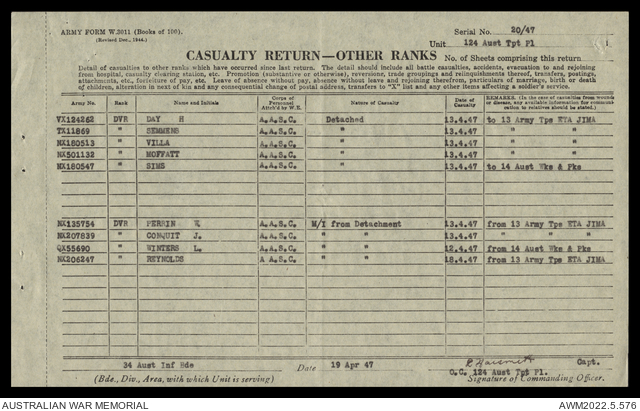 ARMY FORM W.3011 (Books of 100).
(Revised Dec., 1944.)
Serial No. 20/47
Unit 124 Aust Tpt Pl
CASUALTY RETURN—OTHER RANKS No. of Sheets comprising this return
Detail of casualties to other ranks which have occurred since last return. The detail should include all battle casualties, accidents, evacuation to and rejoining
from hospital, casualty clearing station, etc. Promotion (substantive or otherwise), reversions, trade groupings and relinquishments thereof, transfers, postings,
attachments, etc., forfeiture of pay, etc. Leave of absence without pay, absence without leave and rejoining therefrom, particulars of marriage, birth or death
of children, alteration in next of kin and any consequential change of postal address, transfers to "X" list and any other items affecting a soldier's service.
Army No. Rank Name and Initials Corps of Personnel Attch'd to W.E. Nature of Casualty Date of Casualty REMARKS. (In the case of casualties from wounds or disease, any available information for communication to relatives should be stated.)
VX124262 DVR DAY H A.A.S.C. Detached 13.4.47 to 13 Army Tps ETA JIMA
TX11869 " SEMMENS A.A.S.C. " 13.4.47 " "
NX180513 " VILLA A.A.S.C. " 13.4.47 " "
NX501132 " MOFFATT A.A.S.C. " 13.4.47 " "
NX180547 " SIMS A.A.S.C. " 13.4.47 to 14 Aust Wks & Pks
NX135754 DVR PERRIN W. A.A.S.C. M/I from Detachment 13.4.47 from 13 Army Tps ETA JIMA
NX207839 " CONQUIT J. A.A.S.C. " " 13.4.47 " " "
QX55690 " WINTERS L. A.A.S.C. " " 12.4.47 from 14 Aust Wks & Pks
NX206247 " REYNOLDS A A.S.C. " " 18.4.47 from 13 Army Tps ETA JIMA
34 Aust Inf Bde Date 19 Apr 47 Capt.
O.C. 124 Aust Tpt Pl.
(Bde., Div., Area, with which Unit is serving) Signature of Commanding Officer.
AUSTRALIAN WAR MEMORIAL AWM2022.5.576